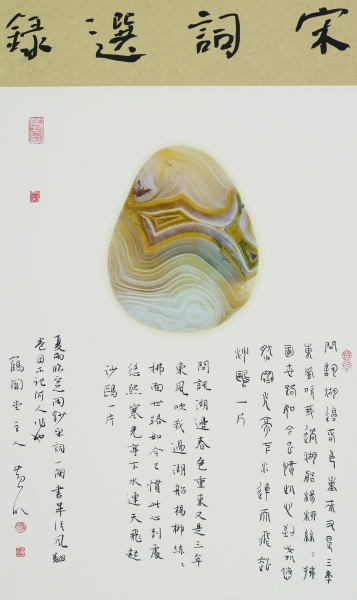 宋詞選録
問訊湖邊春色重來又是三年
東風吹我過湖船楊柳絲〻拂
面世路如今已慣此心到處悠
然寒光亭下水連天飛起
沙鷗一片
問訊湖邊春色重來又是三年
東風吹我過湖船楊柳絲〻
拂面世路如今已慣此心到處
悠然寒光亭下水連天飛起
沙鷗一片
夏雨臨窗閑鈔宋詞一闋書畢清風翻
卷因不記何人作也
主人